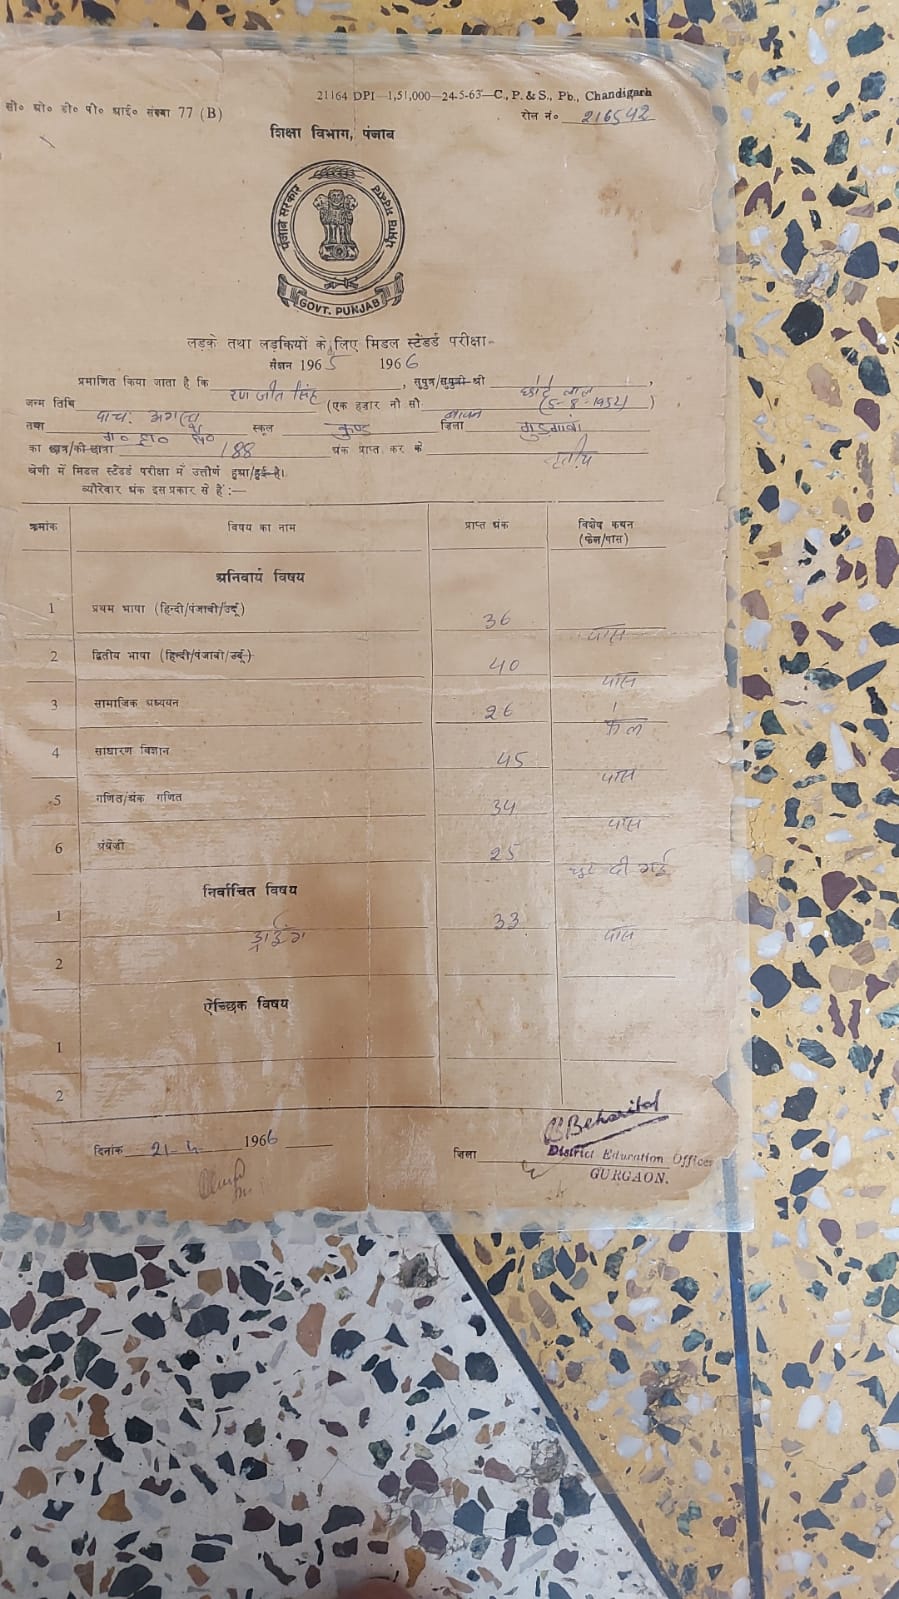 21164 DPI—1,51,000—24-5-63—C., P. & S., Pb., Chandigarh
सी० ओ० डी० पी० आई० संख्या 77 (B)
रोल नं० 216542
शिक्षा विभाग, पंजाब
पंजाब सरकार
GOVT. PUNJAB
लड़के तथा लड़कियों के लिए मिडल स्टैंडर्ड परीक्षा
सैशन 1965 1966
प्रमाणित किया जाता है कि रणजीत सिंह, सुपुत्र/सुपुत्री श्री छोटे लाल,
जन्म तिथि पांच अगस्त (एक हज़ार नौ सौ बावन (5-8-1952)
तथा ग० हा० स्कूल कुण्ड ज़िला गुड़गावां
का छात्र/की छात्रा 188 अंक प्राप्त कर के तृतीय
श्रेणी में मिडल स्टैंडर्ड परीक्षा में उत्तीर्ण हुआ/हुई है।
ब्यौरेवार अंक इस प्रकार से हैं :—
क्रमांक विषय का नाम प्राप्त अंक विशेष कथन
(फेल/पास)
अनिवार्य विषय
1 प्रथम भाषा (हिन्दी/पंजाबी/उर्दू) 36 पास
2 द्वितीय भाषा (हिन्दी/पंजाबी/उर्दू) 40 पास
3 सामाजिक अध्ययन 26 फेल
4 साधारण विज्ञान 45 पास
5 गणित/अंक गणित 34 पास
6 अंग्रेज़ी 25 छूट दी गई
निर्वाचित विषय
1 ड्राईंग 33 पास
2
ऐच्छिक विषय
1
2
दिनांक 21-4- 1966
ज़िला
District Education Officer
GURGAON.